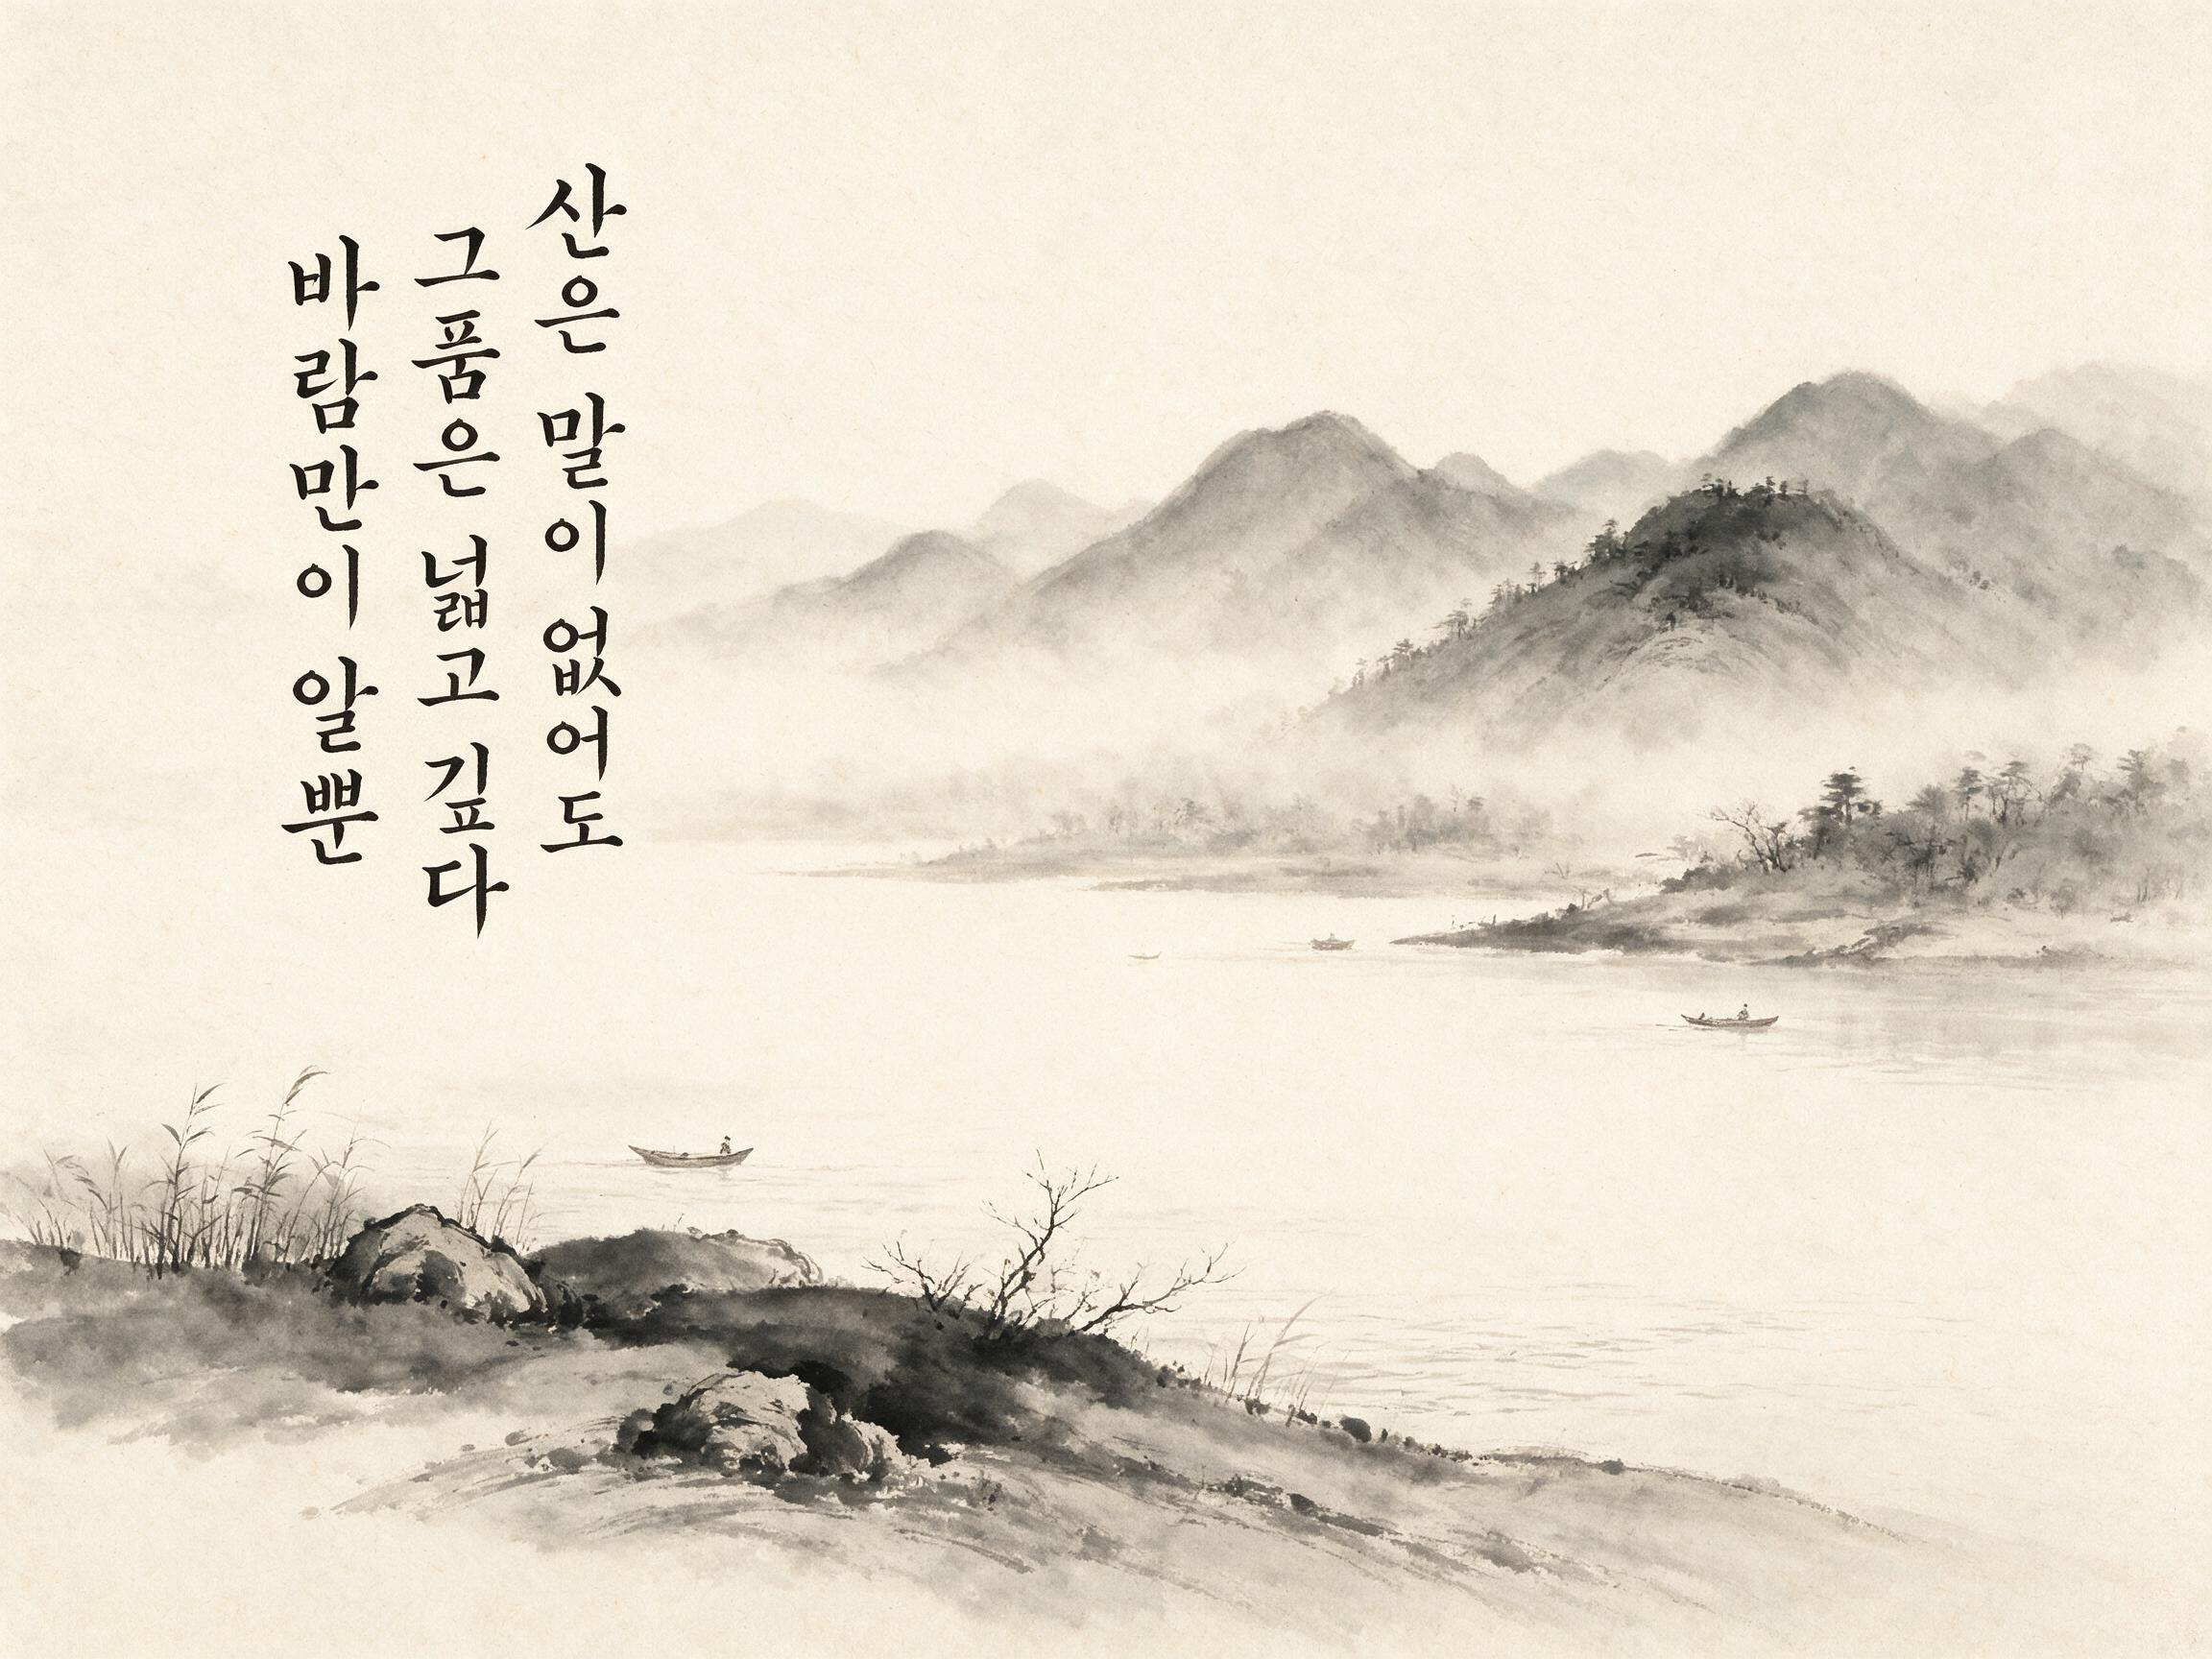 산은 말이 없어도
그 품은 넓고 깊다
바람만이 알 뿐